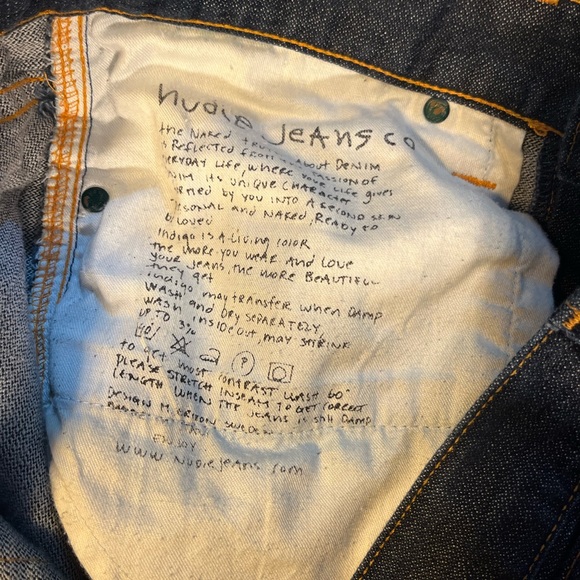 nudie JEANS CO
the NAKED TRUTH ABOUT DENIM
REFLECTED FROM A PASSION OF
EVERYDAY LIFE, WHERE YOUR LIFE gives
DENIM ITS UNIQUE CHARACTER
FORMED BY YOU INTO A SECOND SKIN
PERSONAL AND NAKED, READY to
be loved
Indigo IS A LIVING COLOR
the MORE YOU WEAR AND LOVE
YOUR JEANS, THE MORE BEAUTIFUL
they get
indigo may transfer when DAMP
WASH AND DRY SEPARATELY,
WASH inside out, may SHRINK
UP TO 3%
to get most CONTRAST WASH 60°
PLEASE STRETCH INSEAM TO GET CORRECT
LENGTH WHEN THE JEANS IS STILL DAMP
DESIGN SWEDEN
ENJOY
WWW NUDIEJEANS.COM